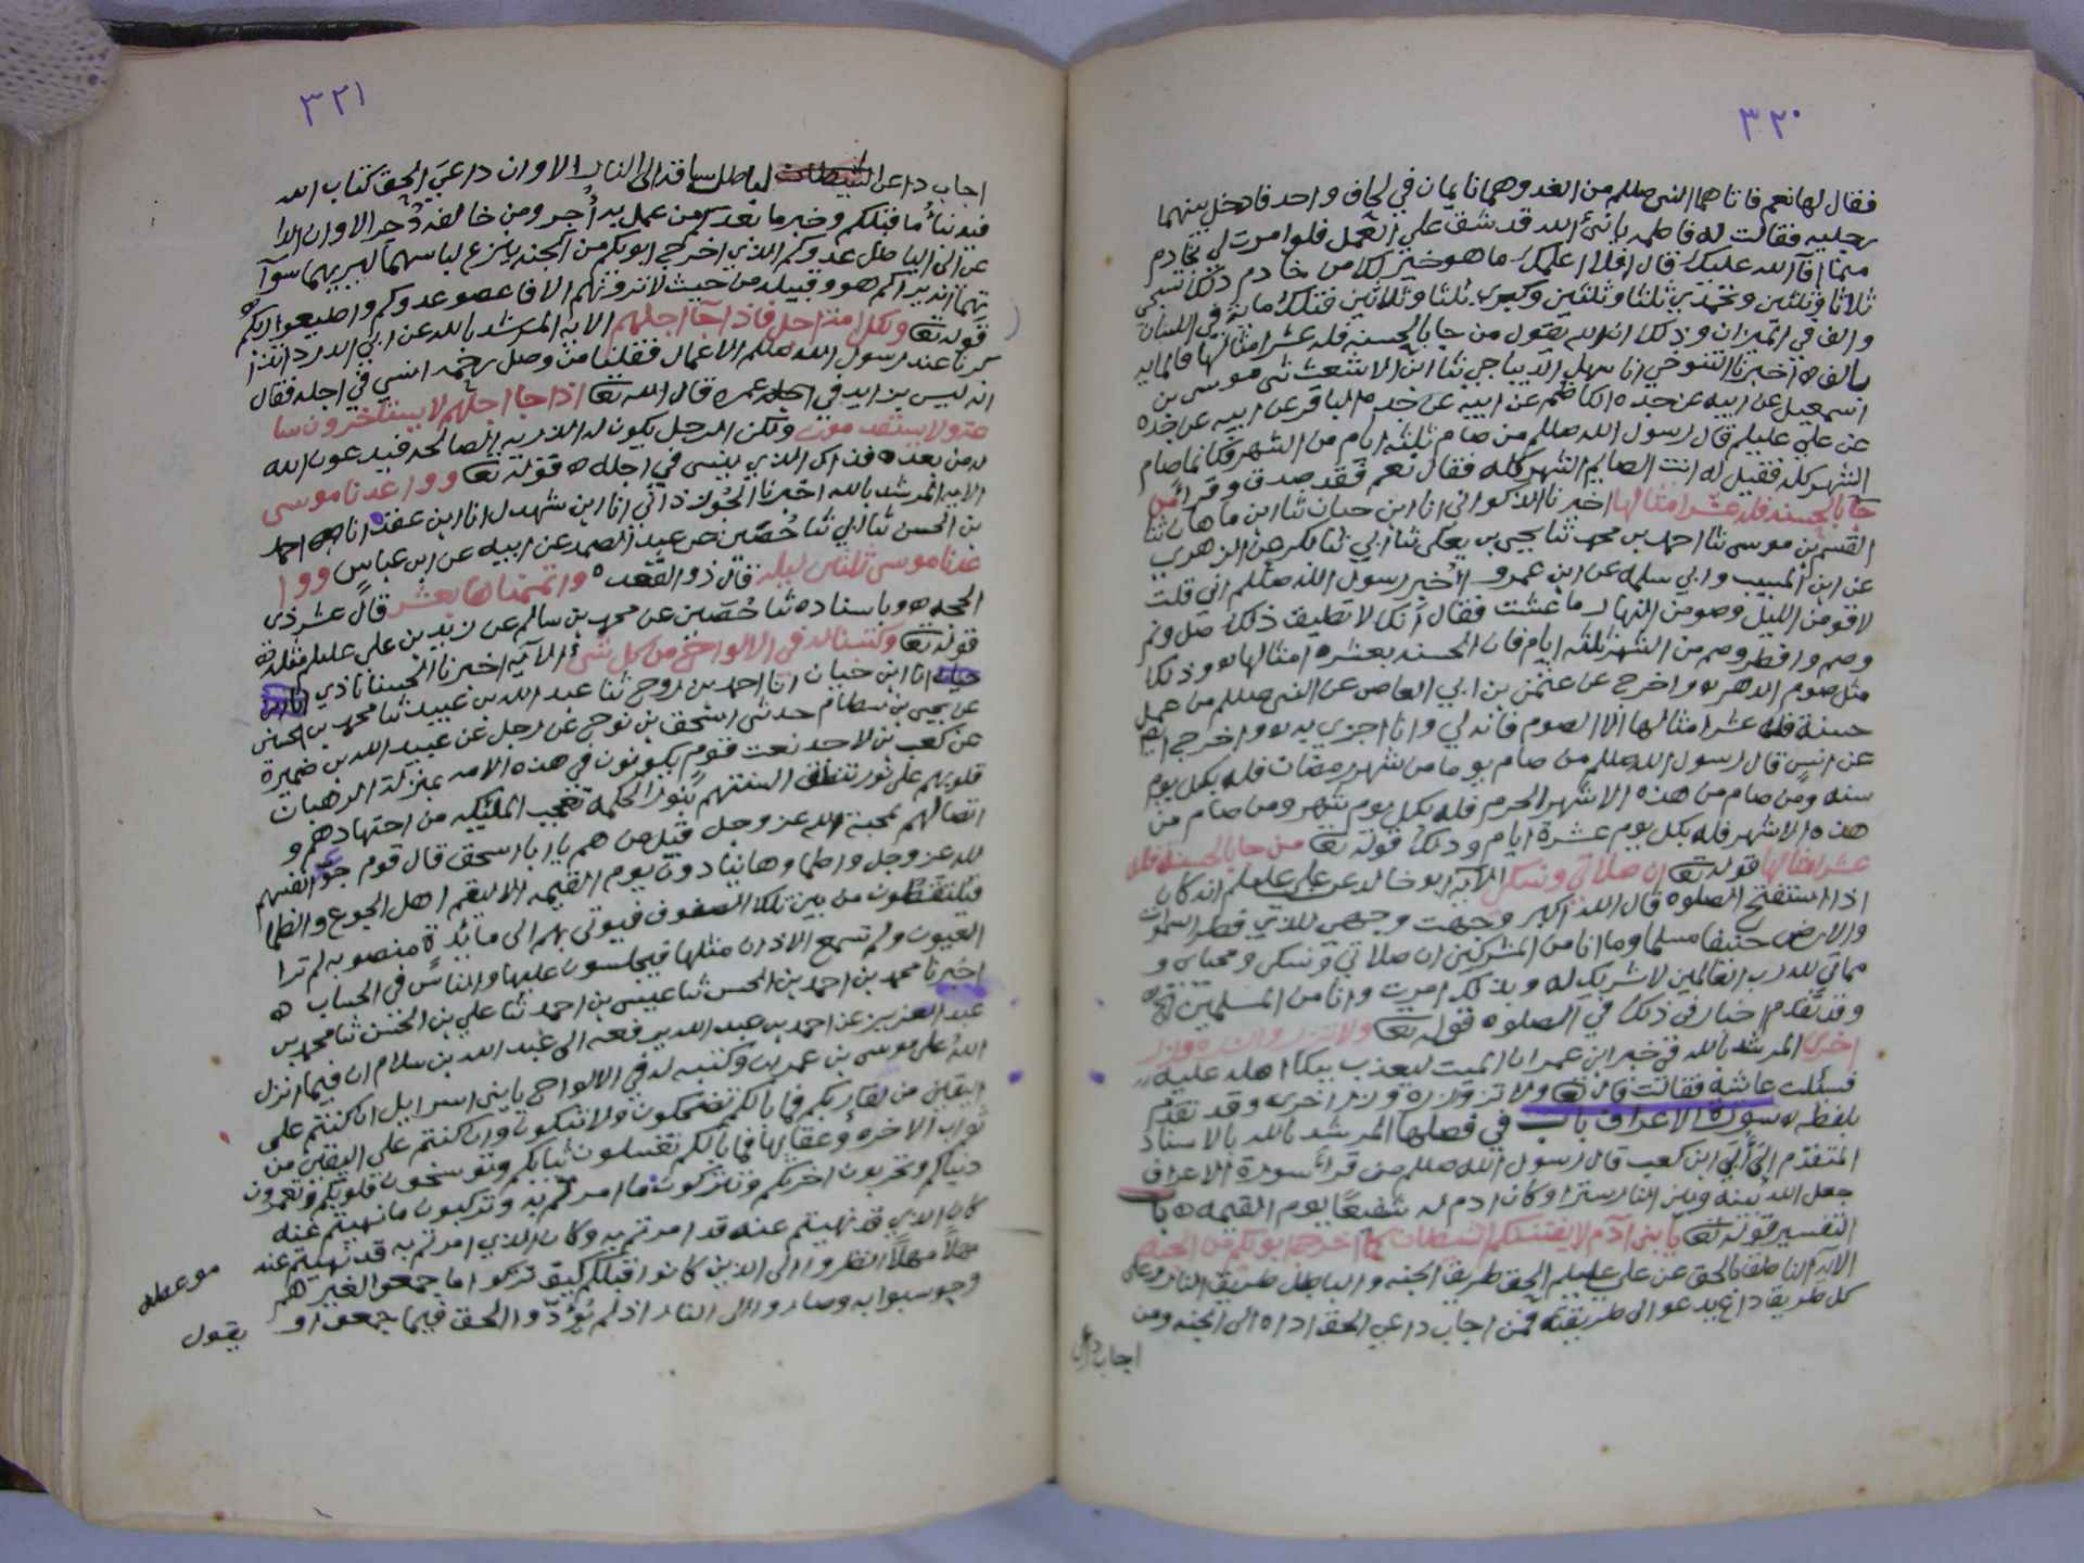 ٣٢٠
فقال لها نعم فاتاهما النبي صللم من الغد وهما نايمان في لحاف واحد فادخل بينهما
رجليه فقالت له فاطمه يا نبي الله قد شق علي العمل فلو امرت لي بخادم
مما افآ الله عليك قال افلا اعلمك ما هو خير لك من خادم ذلك تسبحي
ثلاثا وثلثين وتحمدي ثلثا وثلثين وكبري ثلثا وثلاثين فتلك مائة في اللسان
والف في الميزان وذلك ان الله يقول من جا بالحسنه فله عشر امثالها فالمايه
بالف ٥ اخبرنا التنوخي انا سهل الديباجي ثنا ابن الاشعث ثنى موسى بن
اسمعيل عن ابيه عن جده الكاظم عن ابيه عن جده الباقر عن ابيه عن جده
عن علي عليلم قال رسول الله صللم من صام ثلثه ايام من الشهر فكانما صام
الشهر كله فقيل له انت الصايم الشهر كله فقال نعم فقد صدق وقرا من
جا بالحسنه فله عشر امثالها اخبرنا الذكواني انا ابن حبان ثنا ابن ماهان ثنا
القسم بن موسى ثنا احمد بن محمد ثنا يحيى بن يعلى ثنا ابي ثنا بكر عن الزهري
عن ابن المسيب وابي سلمه عن ابن عمرو اُخبر رسول الله صللم اني قلت
لاقومن الليل وصومن النهار ما عشت فقال انك لا تطيق ذلك صل ونم
وصم وافطر وصم من الشهر ثلثه ايام فان الحسنه بعشره امثالها وذلك
مثل صوم الدهر واخرج عن عثمن بن ابي العاص عن النبي صللم من عمل
حسنة فله عشر امثالها الا الصوم فانه لي وانا اجزي به واخرج ايضا
عن انس قال رسول الله صللم من صام يوما من شهر رمضان فله بكل يوم
سنه ومن صام من هذه الاشهر الحرم فله بكل يوم شهر ومن صام من
هذه الاشهر فله بكل يوم عشرة ايام وذلك قوله تعا من جا بالحسنة فله
عشر امثالها قوله تعا ان صلاتي ونسكي الآيه ابو خالد عن علي عليلم انه كان
اذا استفتح الصلوه قال الله اكبر وجهت وجهي للذي فطر السموات
والارض حنيفا مسلما وما انا من المشركين ان صلاتي ونسكي ومحياى و
مماتي لله رب العالمين لا شريك له وبذلك امرت وانا من المسلمين
وقد تقدم اخبار في ذلك في الصلوه قوله تعا ولا تزر وازره وزر
اخرى المرشد بالله في خبر ابن عمر ان الميت ليعذب ببكا اهله عليه
فسئلت عائشه فقالت قال تعا ولا تزر وازره وزر اخرى وقد تقدم
بلفظه سورة الاعراف باب في فصلها المرشد بالله بالاسناد
المتقدم الى اُبَي ابن كعب قال رسول الله صللم من قرا سورة الاعراف
جعل الله بينه وبين النار سترا وكان ادم له شفيعًا يوم القيمه ٥ باب
التفسير قوله تعا يا بني آدم لا يفتننكم الشيطان كما اخرج ابويكم من الجنه
الآيه الناطق بالحق عن علي عليلم الحق طريق الجنه والباطل طريق النار وعلى
كل طريق داعٍ يدعو الى طريقته فمن اجاب داعي الحق اداه الى الجنه ومن
اجاب داعي
٣٢١
اجاب داعي الباطل ساقه الى النار الا وان داعي الحق كتاب الله
فيه نباُ ما قبلكم وخبر ما بعدكم من عمل به اُجر ومن خالفه دُحر الا وان الدا
عى الى الباطل عدوكم الذي اخرج ابويكم من الجنه ينزع لباسهما ليريهما سوآ
تهما انه يراكم هو وقبيله من حيث لا ترونهم الا فاعصو عدوكم واطيعوا ربكم
قوله تعا ولكل امة اجل فاذا جآ اجلهم الآيه المرشد بالله عن ابي الدردا تذا
كرنا عند رسول الله صللم الاعمال فقلنا من وصل رحمه انسي في اجله فقال
انه ليس يزايد في اجله عمره قال الله تعا اذا جا اجلهم لا يستاخرون سا
عة ولا يستقدمون ولكن الرجل يكون له الذريه الصالحه فيدعون الله
له من بعده فذاك الذي ينسى في اجله ٥ قوله تعا وواعدنا موسى
الايه المرشد بالله اخبرنا الجُوزذاني انا ابن شهدل انا ابن عقده انا احمد
بن الحسن ثنا ابي ثنا حُصَين عن عبد الصمد عن ابيه عن ابن عباس ووا
عدنا موسى ثلثين ليله قال ذو القعده واتممناها بعشر قال عشر ذي
الحجه ٥ وباسناده ثنا حُصَين عن محمد بن سالم عن زيد بن علي عليلم مثله ٥
قوله تعا وكتبنا له في الالواح من كل شيء الآيه اخبرنا الحسناباذي
انا ابن حبان انا احمد بن روح ثنا عبد الله بن عبيد ثنا محمد بن الحسن
عن يحيى بن بسطام حدثني اسحق بن نوح عن رجل عن عبيد الله بن ضميرة
عن كعب بن لاحد نعت قوم يكونون في هذه الامه بمنزلة الرهبان
قلوبهم على نور تنطق السنتهم بنور الحكمة تعجب المليكه من اجتهادهم و
اتصالهم بمحبة الله عز وجل قيل من هم يا ابا اسحق قال قوم جوّعوا انفسهم
لله عز وجل واظماوها ينادون يوم القيمه الا ليقم اهل الجوع والظما
فيلتقطون من بين تلك الصفوف فيوتى بهم الى مائدة منصوبه لم ترا
العيون ولم تسمع الاذان مثلها فيجلسون عليها والناس في الحساب ٥
اخبرنا محمد بن احمد بن الحسن ثنا عيسى بن احمد ثنا علي بن الحسن ثنا محمد بن
عبد العزيز عن احمد بن عبد الله يرفعه الى عبد الله بن سلام ان فيما انزل
الله على موسى بن عمران وكتبه له في الالواح يا بني اسرايل ان كنتم على
اليقين من لقا ربكم فما بالكم تضحكون ولا تبكون وان كنتم على اليقين من
ثواب الاخره وعقابها فما بالكم تغسلون ثيابكم وتوسخون قلوبكم وتعمرون
دنياكم وتخربون اخرتكم وتتركون ما امرتم به وتركبون ما نهيتم عنه
كان الذي قد نهيتم عنه قد امرتم به وكان الذي امرتم به قد نهيتم عنه
مهلاً مهلاً انظروا الى الذين كانوا قبلكم كيف تركوا ما جمعوا لغيرهم
وحوسبوا به وصاروا الى النار اذ لم يؤدوا الحق فيما جمعوا او
موعظه
يقول